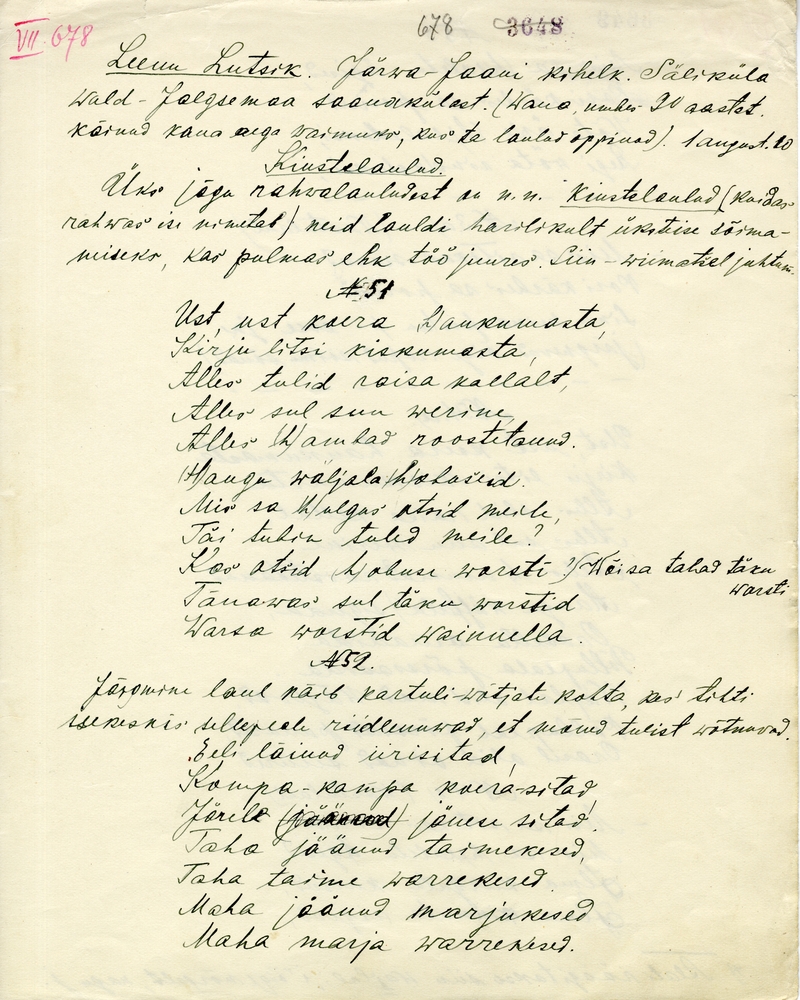 VII 678
678 3648
Leenu Lutsik. Järwa-Jaani kihelk. Säliküla
wald - Jalgsemaa saunakülast. (Wana, umbes 90 aastat.
käinud kana aega waimuks, kus ta laulud õppinud). 1 august. 20
Kiustelaulud.
Üks jagu rahwalauludest on n.n. kiustelaulud (kuidas
rahwas ise nimetab) neid lauldi harilikult üksteise sõima-
miseks, kas pulmas ehk töö juures. Siin - wiimatsel juhtum.
№ 51
Ust, ust koera (h)aukumasta,
Kirju litsi kiskumasta,
Alles tulid raisa kallalt,
Alles sul suu werine,
Alles (h)ambad roostetanud.
(H)angu wäljala (h)obuseid.
Mis sa (h)ulgus otsid meile,
Täi tubin tuled meile?
Kas otsid (h)obuse worsti? (Wõi sa tahad täku
worsti
Tänawas sul täku worstid
Warsa worstid wainuella.
№ 52.
Järgmine laul käib kartuli-wõtjate kohta, kes tihti
isekeskis sellepeale riidlenuwad, et mõned tulist wõtnuvad.
Eeli läinud iirisitad,
Kompa-kampa koera-sitad,
Järele (jäänud) jänese sitad.
Taha jäänud taimekesed,
Taha taime warrekesed.
Maha jäänud marjukesed
Maha marja warrekesed.